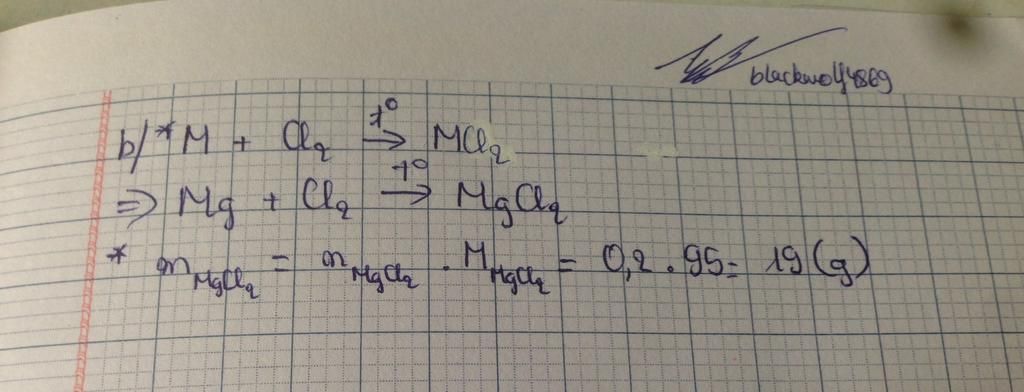 blackwolf4869
b/ * M + Cl₂ →(t°) MCl₂
⇒ Mg + Cl₂ →(t°) MgCl₂
* m_MgCl₂ = n_MgCl₂ . M_MgCl₂ = 0,2 . 95 = 19 (g)